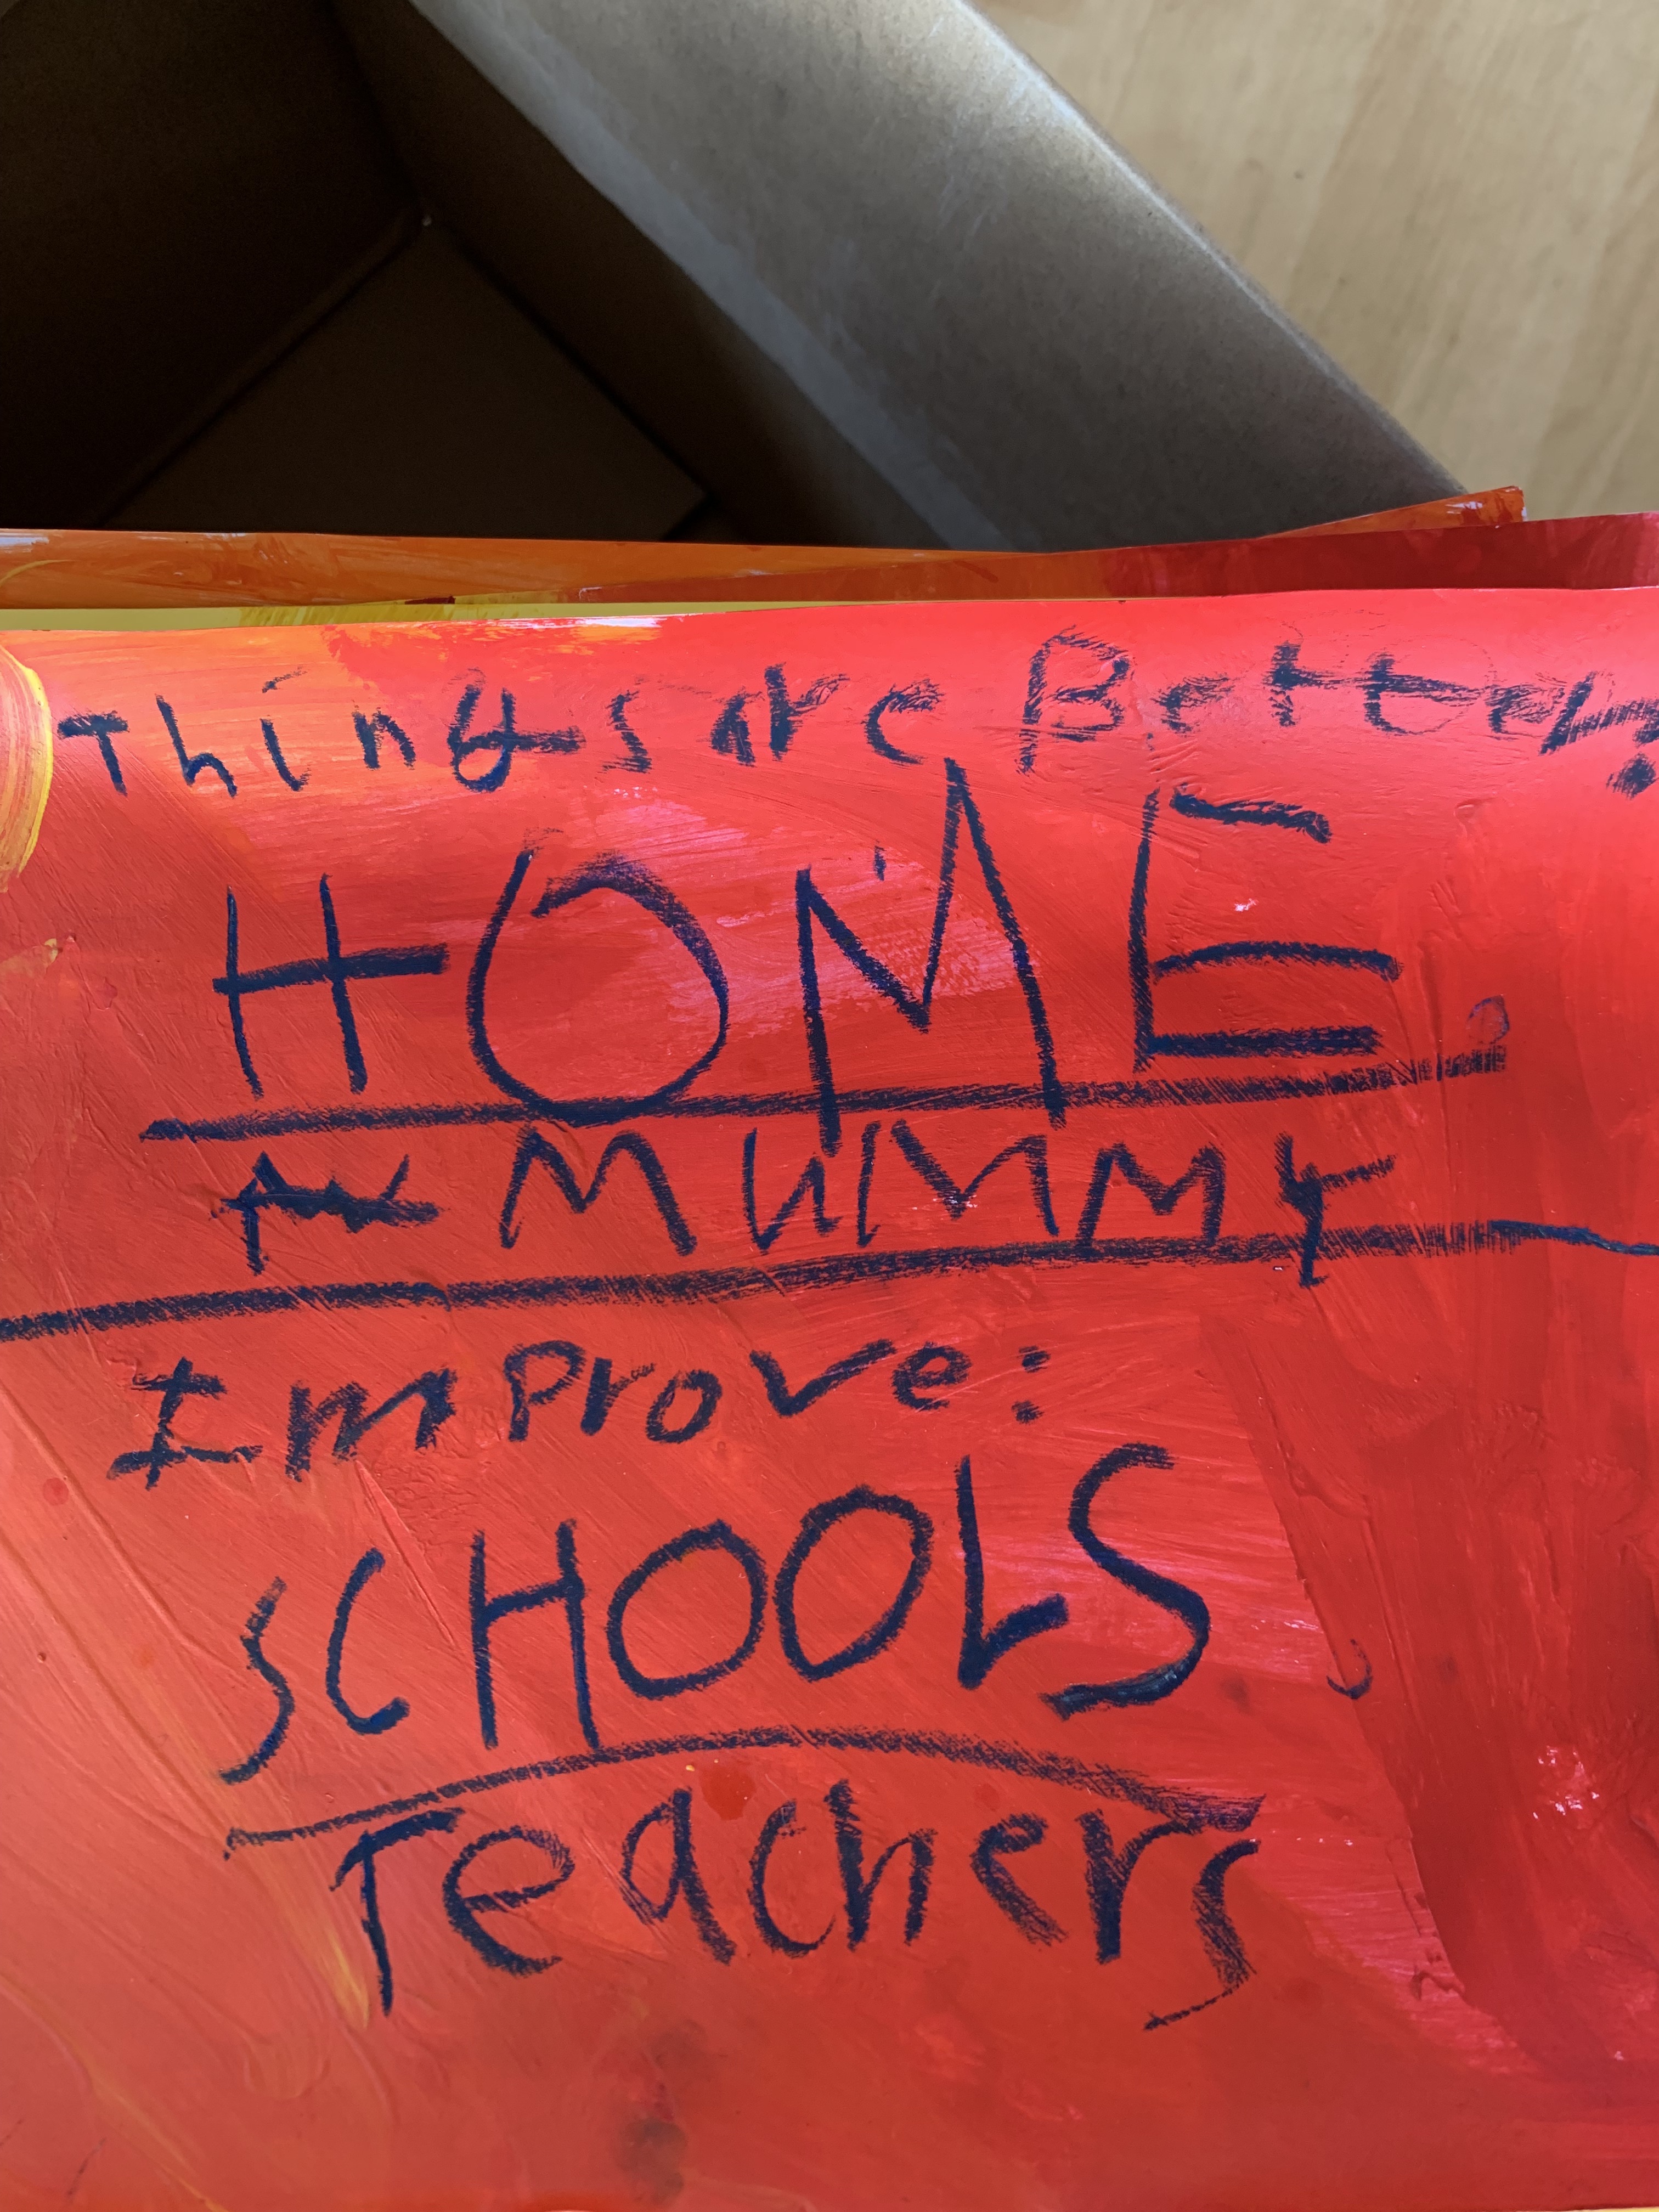 Things are Better:
HOME.
MUMMY
Improve:
SCHOOLS
Teachers